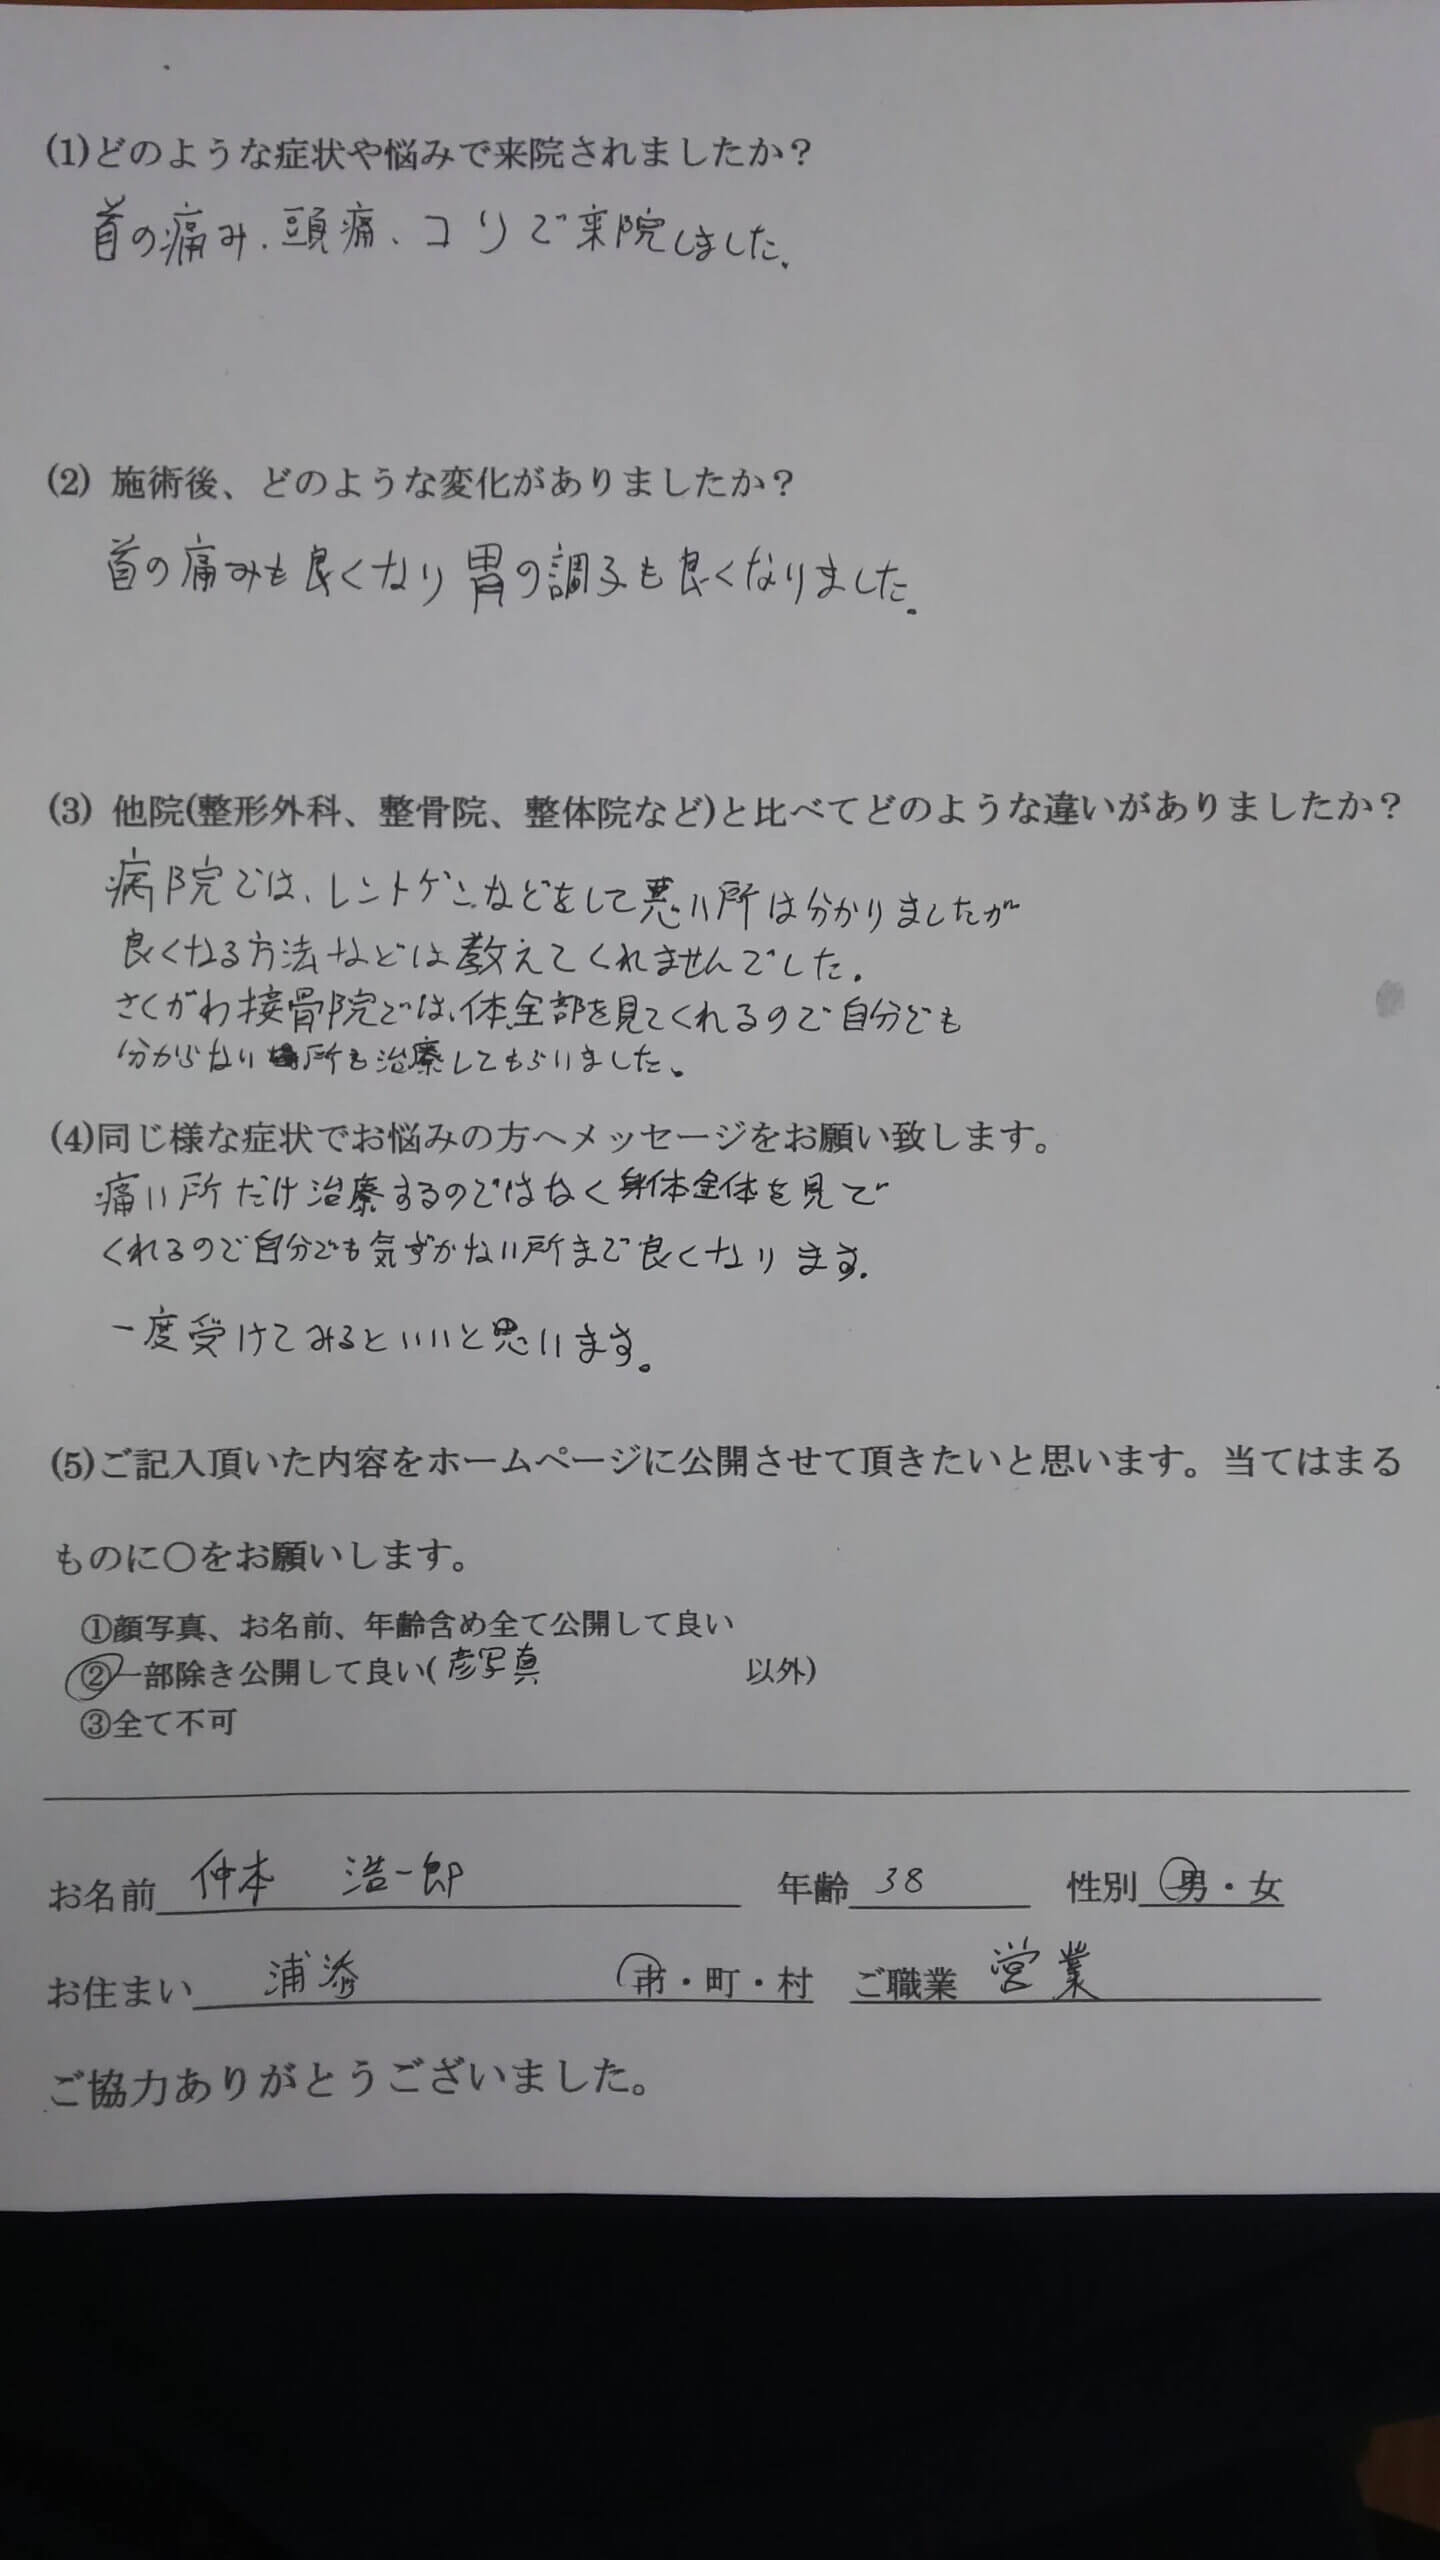 (1)どのような症状や悩みで来院されましたか？
首の痛み、頭痛、コリで来院しました。
(2) 施術後、どのような変化がありましたか？
首の痛みも良くなり胃の調子も良くなりました。
(3) 他院(整形外科、整骨院、整体院など)と比べてどのような違いがありましたか？
病院では、レントゲンなどをして悪い所は分かりましたが
良くなる方法などは教えてくれませんでした。
さくがわ接骨院では、体全部を見てくれるので自分でも
分からない場所も治療してもらいました。
(4)同じ様な症状でお悩みの方へメッセージをお願い致します。
痛い所だけ治療するのではなく身体全体を見て
くれるので自分でも気ずかない所まで良くなります。
一度受けてみるといいと思います。
(5)ご記入頂いた内容をホームページに公開させて頂きたいと思います。当てはまる
ものに〇をお願いします。
①顔写真、お名前、年齢含め全て公開して良い
②一部除き公開して良い(写真 以外)
③全て不可
お名前 仲本 浩一郎 年齢 38 性別 男・女
お住まい 浦添 市・町・村 ご職業 営業
ご協力ありがとうございました。